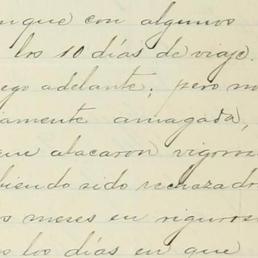 unque con algunos
los 10 días de viaje.
ego adelante; pero no
amente amagada,
que atacaron vigoro
biendo sido rechazado
os meses en riguros
os los días en que